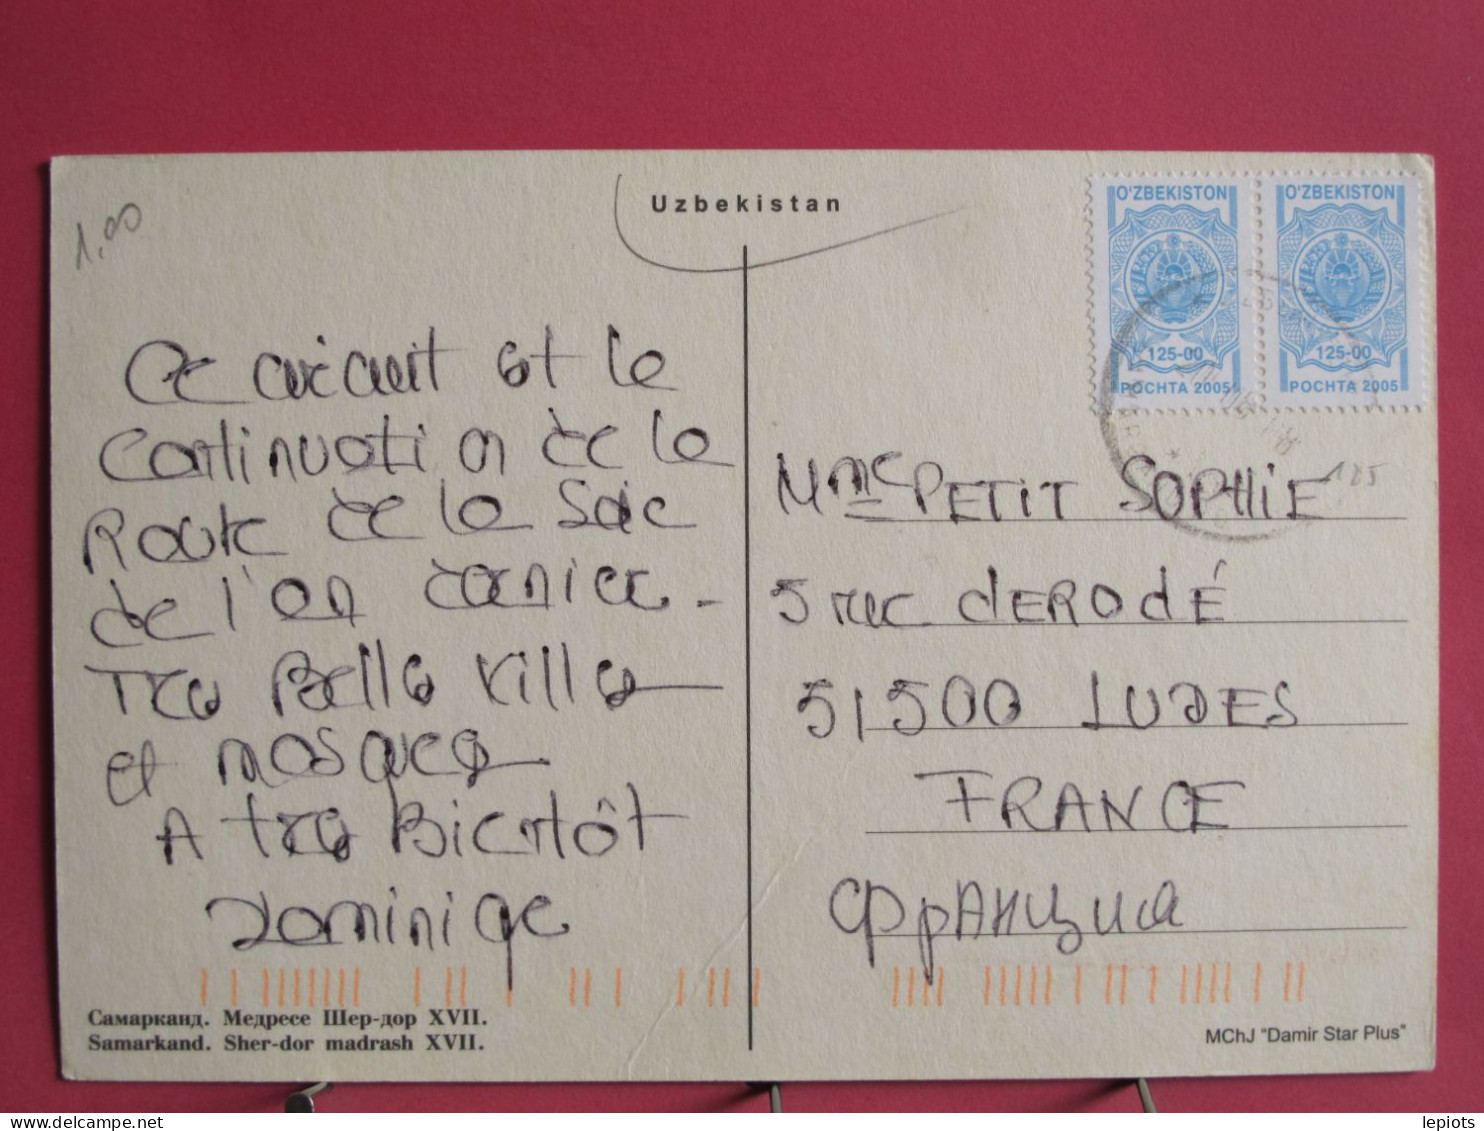 Uzbekistan
1,00
O'ZBEKISTON
125-00
POCHTA 2005
O'ZBEKISTON
125-00
POCHTA 2005
Ce circuit est le
continuation de la
Route de la Soie
de l'an dernier.
Très Belle ville
et mosquée
A très Bientôt
Dominique
Mme PETIT SOPHIE
5 rue dERODÉ
51500 LUDES
FRANCE
Франция
Самарканд. Медресе Шер-дор XVII.
Samarkand. Sher-dor madrash XVII.
MChJ "Damir Star Plus"
lepiots